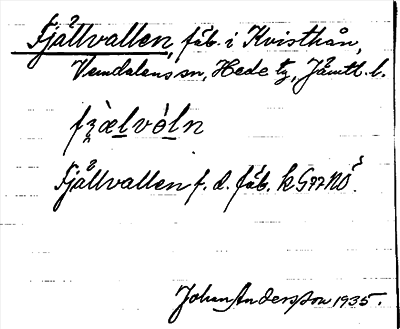 Fjällvallen, fäb. i Kvisthån,
Vemdalens sn, Hede tg, Jämtl. l.
fjällvallen f. d. fäb.
Johan Andersson 1935.